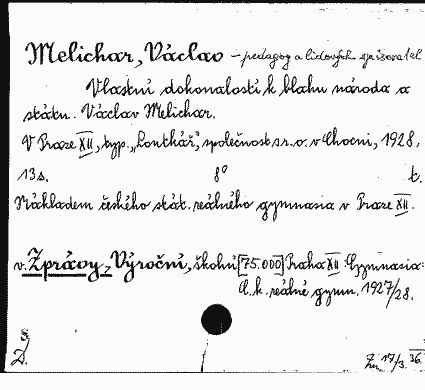 Melichar, Václav - pedagog a lidových. spisovatel
Vlastní dokonalostí k blahu národa a
státu. Václav Melichar.
V Praze XII, typ. „Lonthář", společnost s r. o. v Chocni, 1928,
13 s. 8° t.
Nákladem českého stát. reálného gymnasia v Praze XII.
v. Zprávy, Výroční, školní [75.000] Praha XII. Gymnasia:
Č. k. reálné gymn. 1927/28.
Zn. 17/3. 36.